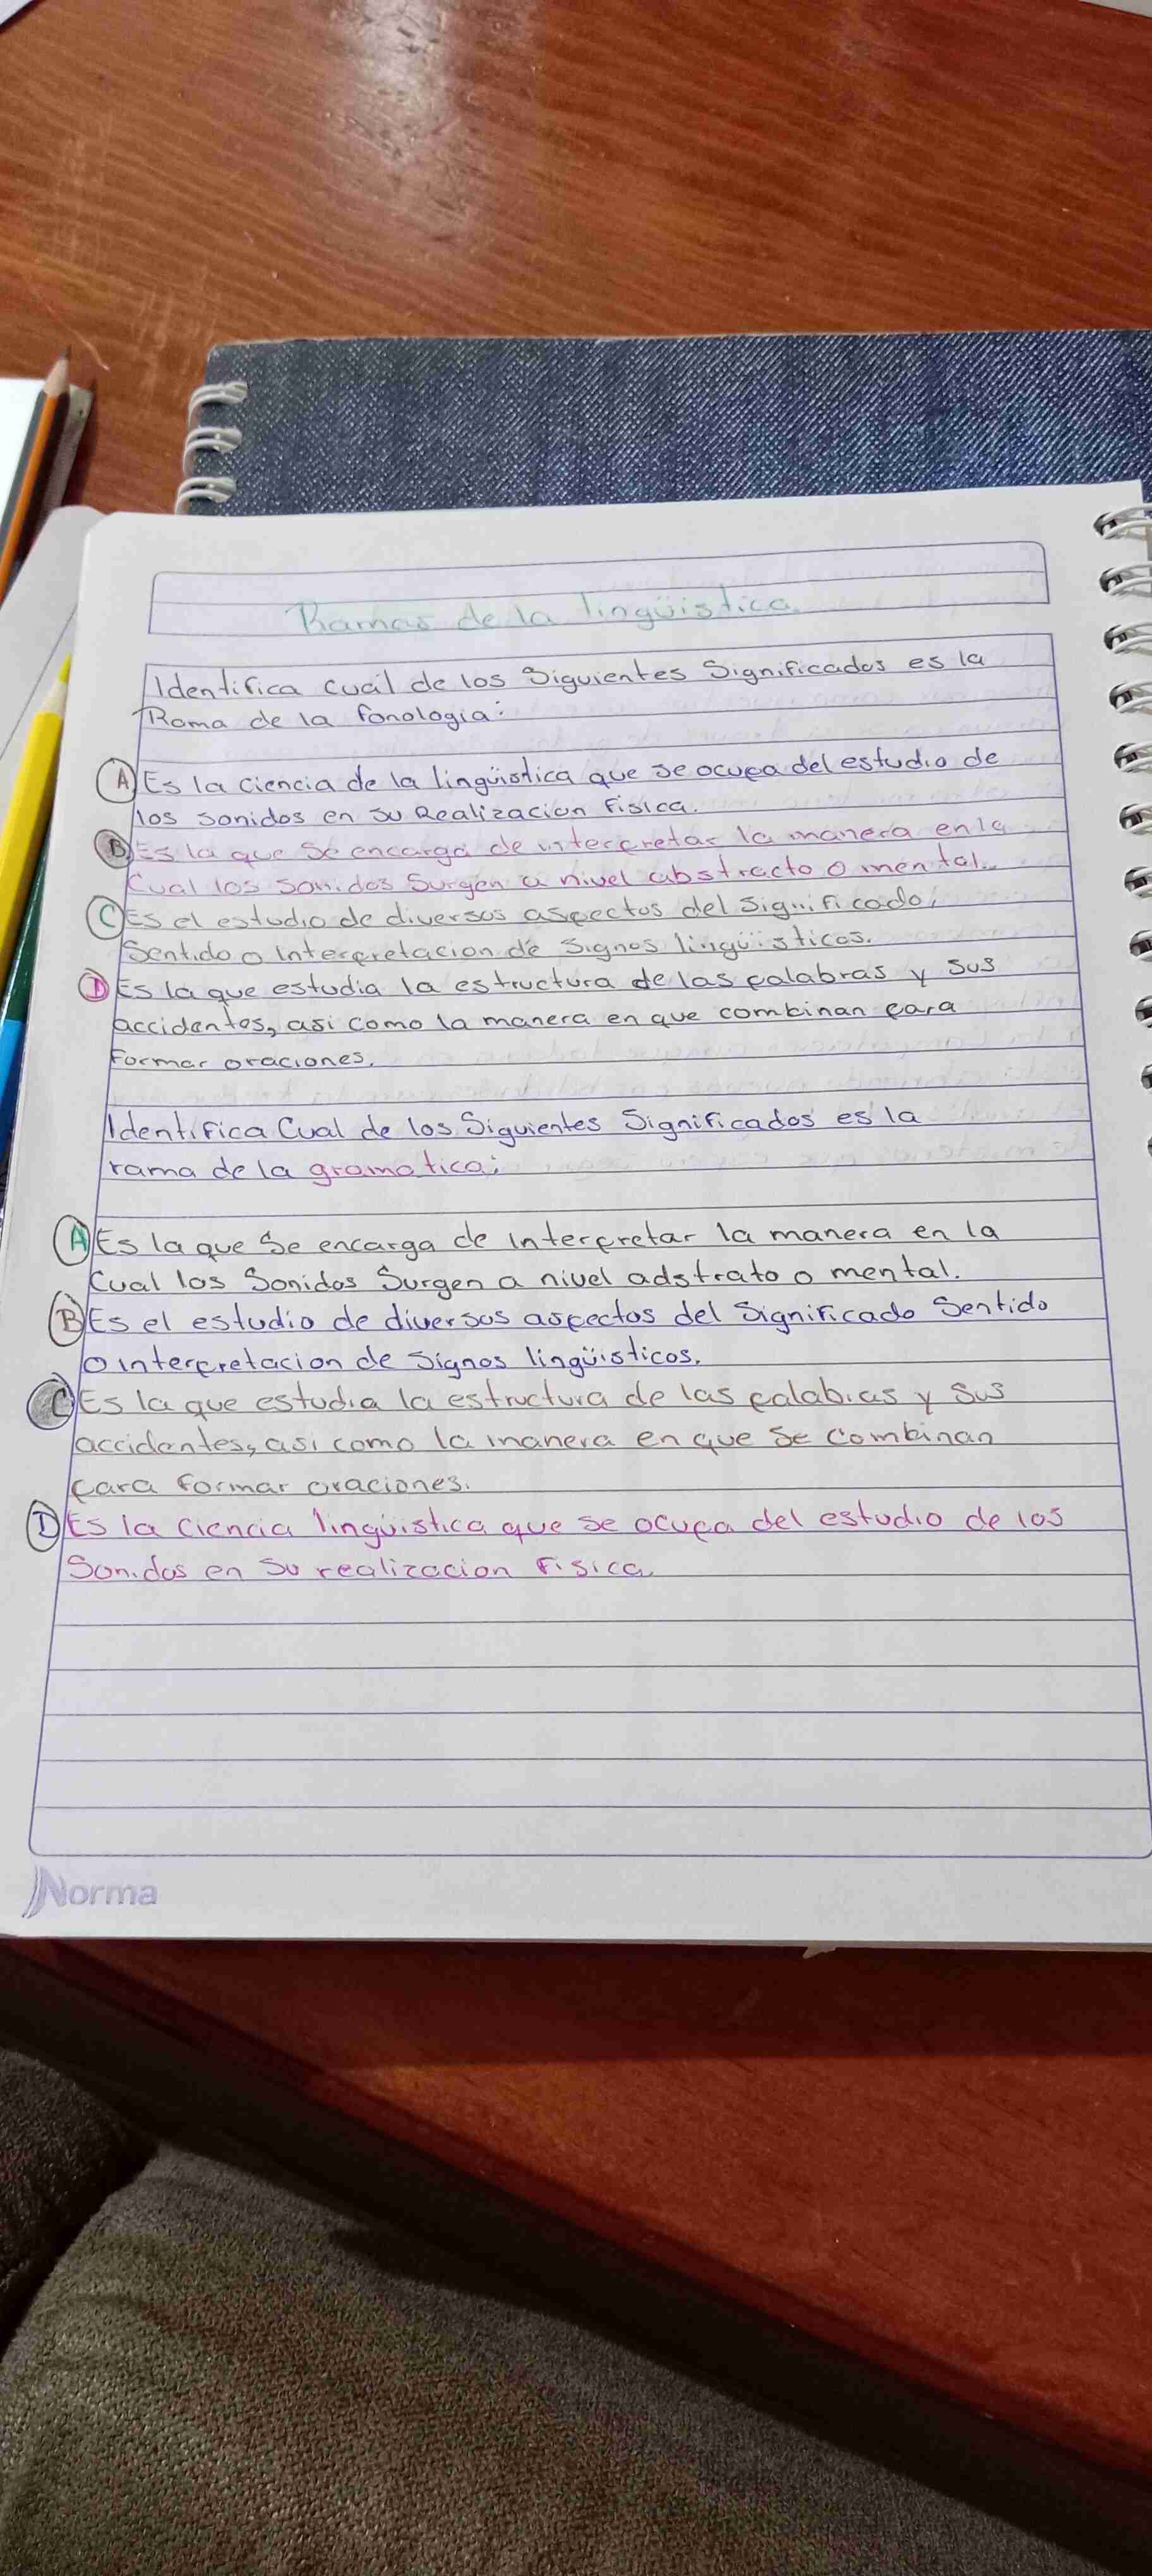 Ramas de la lingüistica
Identifica cuál de los Siguientes Significados es la
Rama de la fonologia:
A Es la ciencia de la lingüistica que se ocupa del estudio de
los sonidos en su Realizacion Fisica.
B Es la que Se encarga de interpretar la manera en la
Cual los sonidos Surgen a nivel abstracto o mental.
C Es el estudio de diversos aspectos del significado,
Sentido o Interpretacion de Signos lingüisticos.
D Es la que estudia la estructura de las palabras y sus
accidentes, asi como la manera en que combinan para
Formar oraciones.
Identifica Cual de los Siguientes Significados es la
rama de la gramatica:
A Es la que Se encarga de Interpretar la manera en la
Cual los Sonidos Surgen a nivel adstrato o mental.
B Es el estudio de diversos aspectos del Significado Sentido
o interpretacion de signos lingüisticos.
C Es la que estudia la estructura de las palabras y Sus
accidentes, asi como la manera en que Se Combinan
para formar oraciones.
D Es la Ciencia lingüistica que se ocupa del estudio de los
Sonidos en Su realizacion Fisica.
Norma